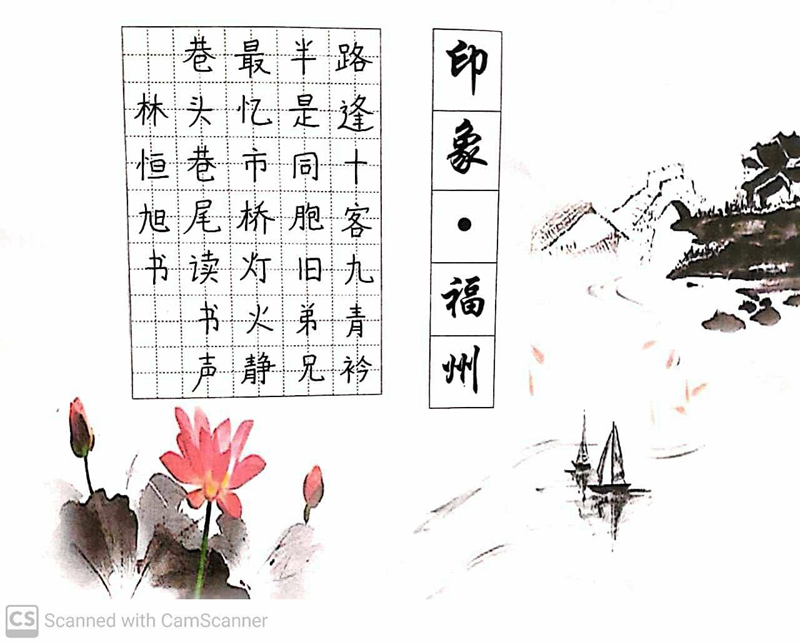 印象·福州
路逢十客九青衿
半是同胞旧弟兄
最忆市桥灯火静
巷头巷尾读书声
林恒旭书
CS Scanned with CamScanner